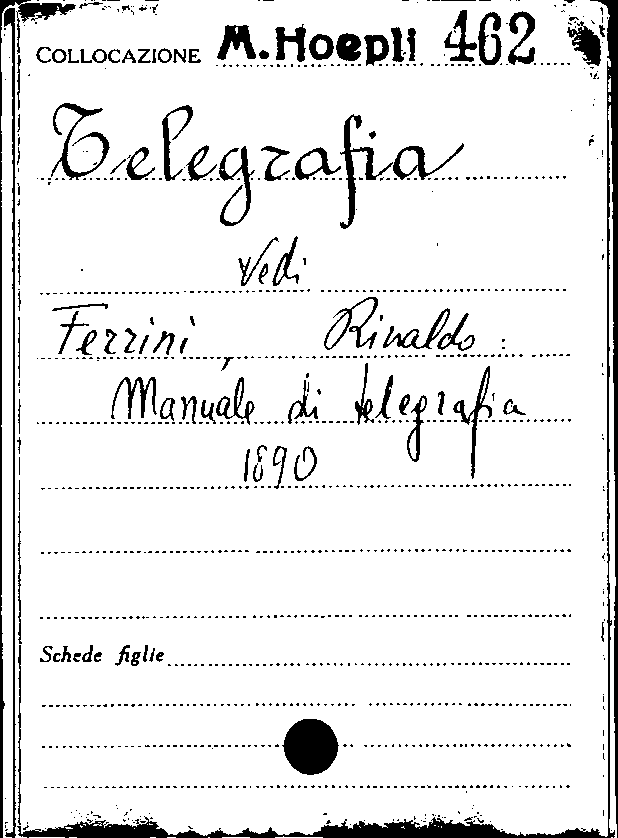 COLLOCAZIONE M.Hoepli 462
Telegrafia
Vedi
Ferrini, Rinaldo:
Manuale di telegrafia
1890
Schede figlie